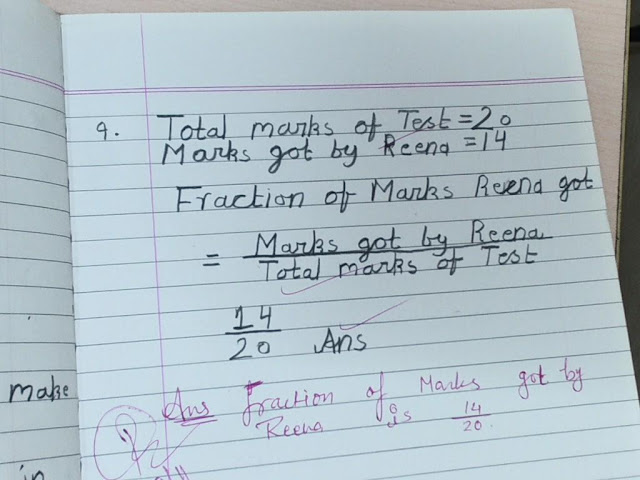 9. Total marks of Test = 20
Marks got by Reena = 14
Fraction of Marks Reena got
= Marks got by Reena
Total marks of Test
14
20 Ans
make
Ans Fraction of Marks got by
Reena is 14
20.
in